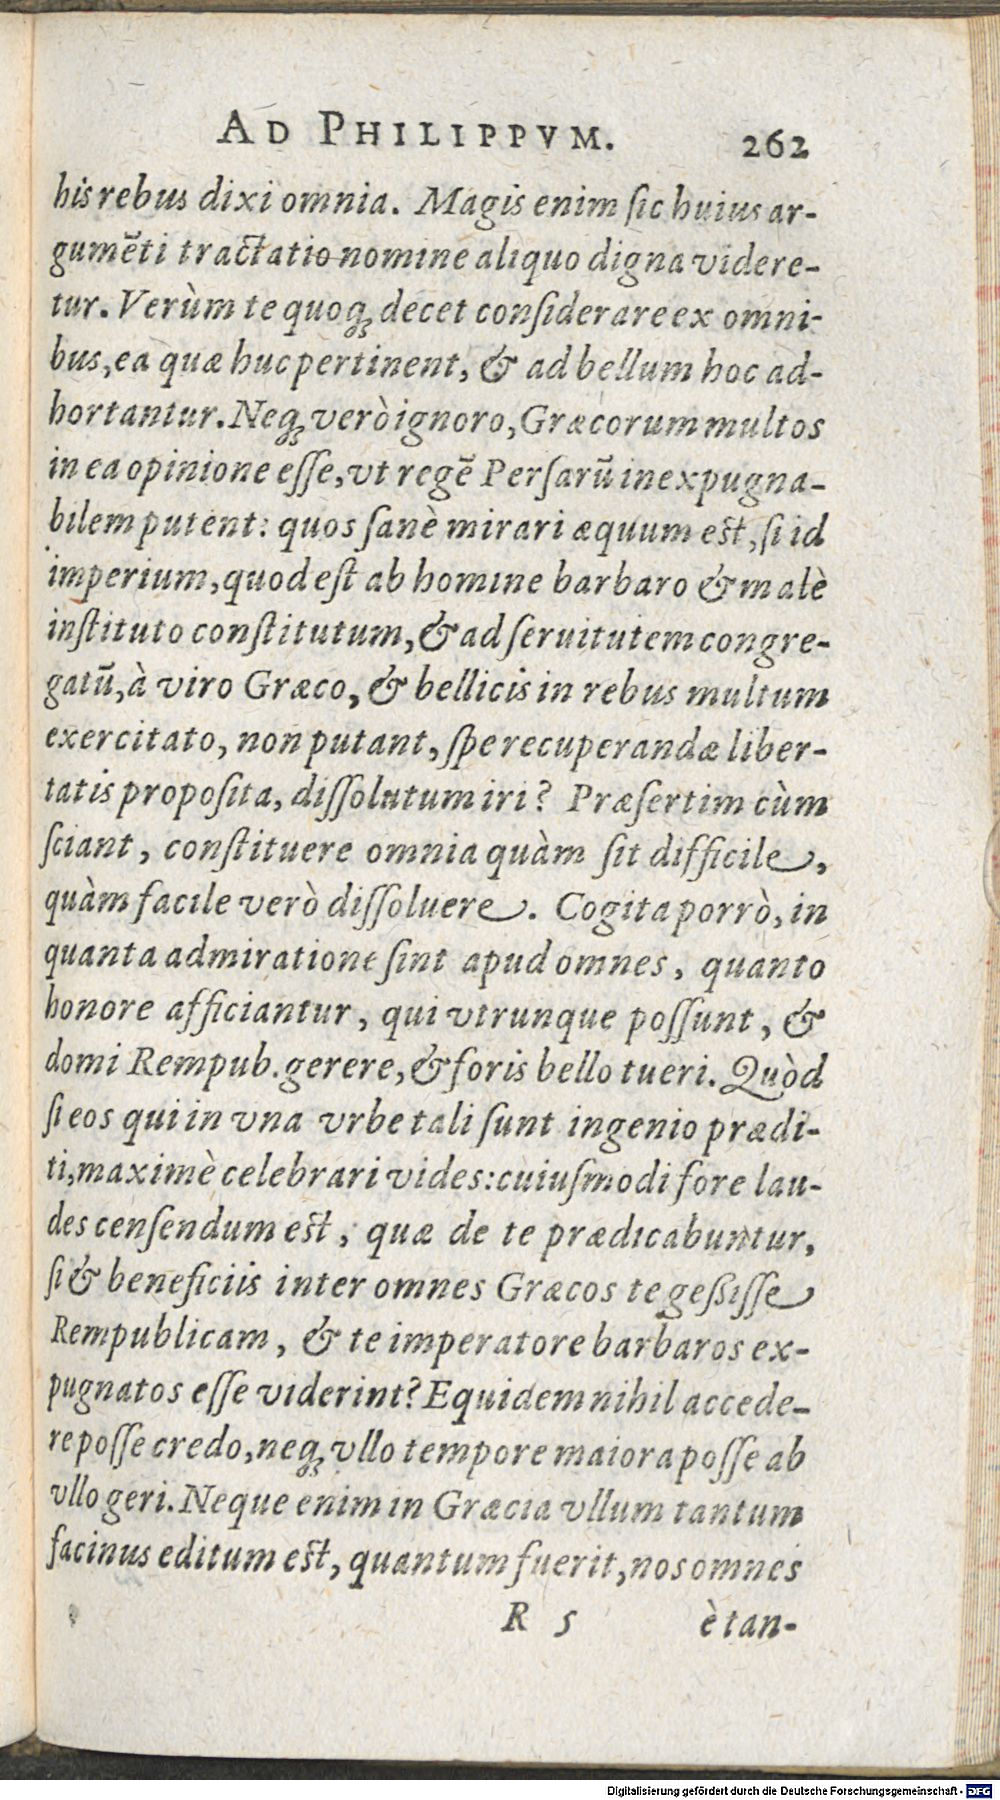 AD PHILIPPVM. 262
his rebus dixi omnia. Magis enim ſic huius ar-
gumẽti tractatio nomine aliquo digna videre-
tur. Verùm te quoqꝫ decet conſiderare ex omni-
bus, ea quæ huc pertinent, & ad bellum hoc ad-
hortantur. Neqꝫ verò ignoro, Græcorum multos
in ea opinione eſſe, vt regẽ Perſarũ inexpugna-
bilem putent: quos ſanè mirari æquum est, ſi id
imperium, quod eſt ab homine barbaro & malè
inſtituto conſtitutum, & ad ſeruitutem congre-
gatũ, à viro Græco, & bellicis in rebus multum
exercitato, non putant, ſpe recuperandæ liber-
tatis propoſita, diſſolutum iri? Præſertim cùm
ſciant, conſtituere omnia quàm ſit difficile,
quàm facile verò diſſoluere. Cogita porrò, in
quanta admiratione ſint apud omnes, quanto
honore afficiantur, qui vtrunque poſſunt, &
domi Rempub. gerere, & foris bello tueri. Quòd
ſi eos qui in vna vrbe tali ſunt ingenio prædi-
ti, maximè celebrari vides: cuiuſmodi fore lau-
des cenſendum est, quæ de te prædicabuntur,
ſi & beneficiis inter omnes Græcos te geßiſſe
Rempublicam, & te imperatore barbaros ex-
pugnatos eſſe viderint? Equidem nihil accede-
re poſſe credo, neqꝫ vllo tempore maiora poſſe ab
vllo geri. Neque enim in Græcia vllum tantum
facinus editum est, quantum fuerit, nos omnes
R 5 è tan-
Digitalisierung gefördert durch die Deutsche Forschungsgemeinschaft - DFG